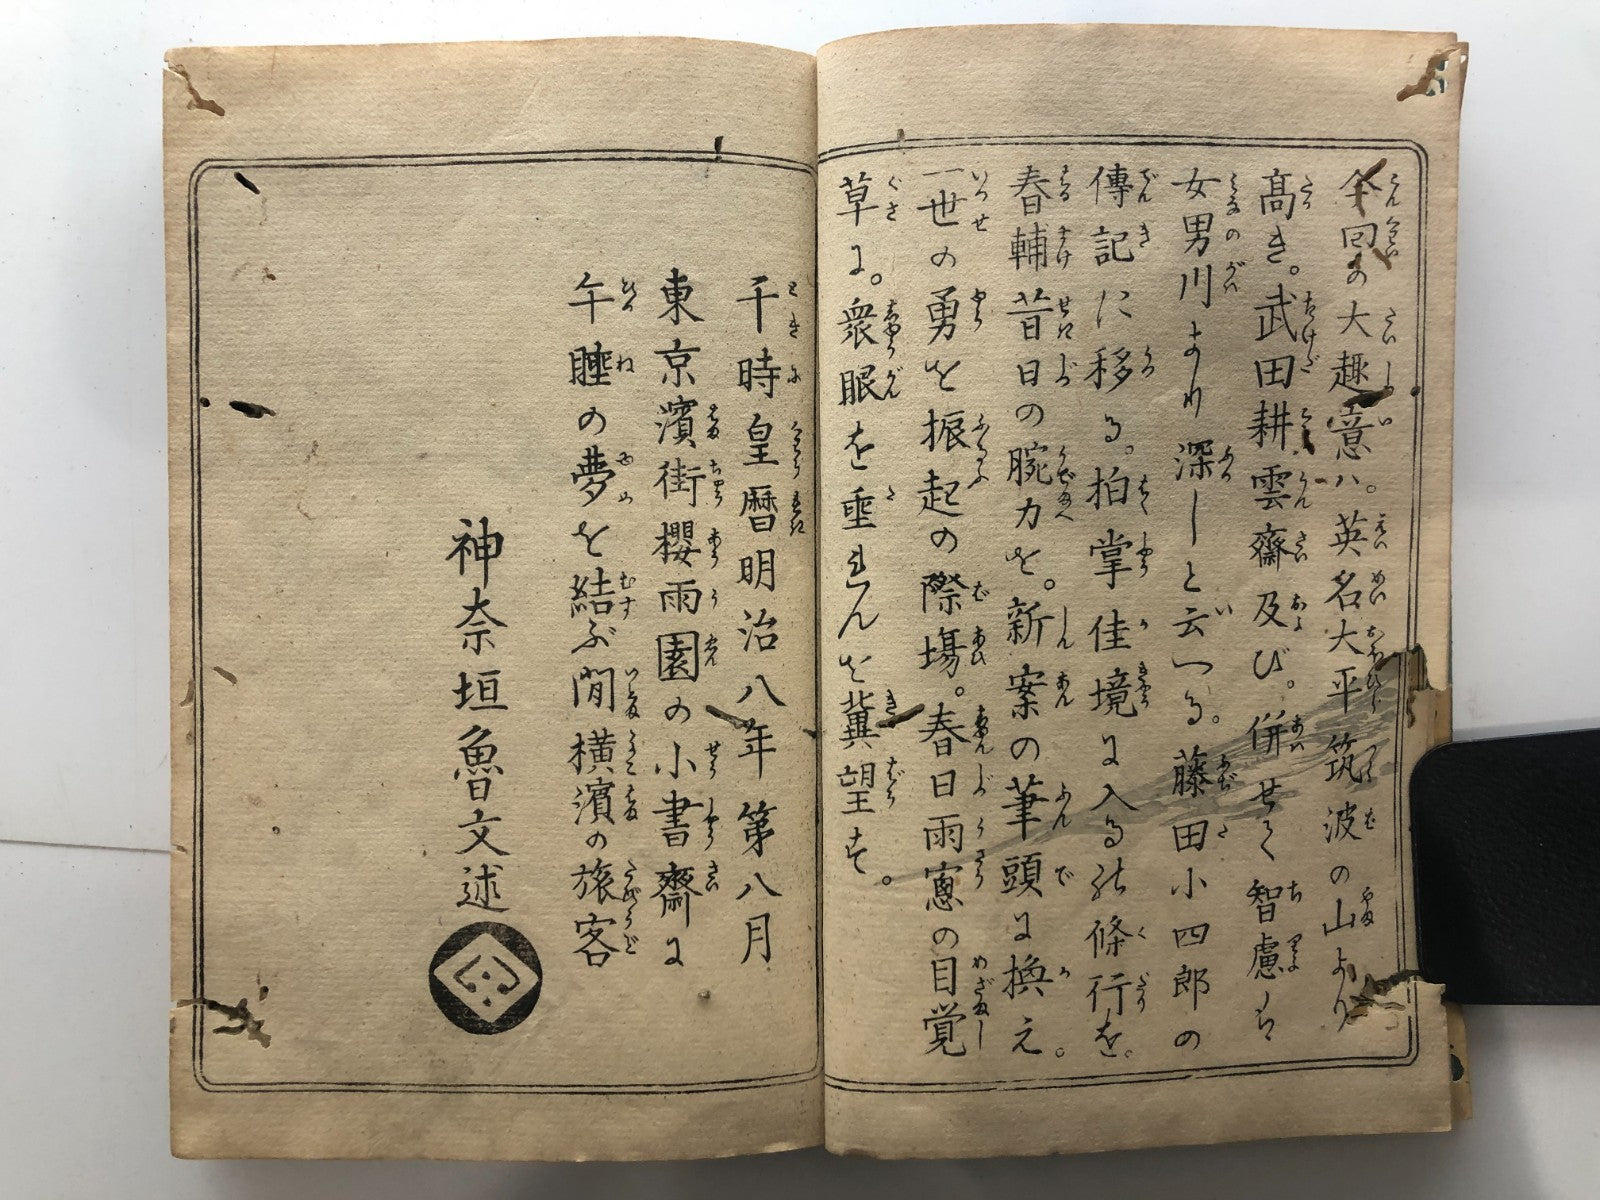 今回の大趣意ハ。英名大平筑波の山より
高き。武田耕雲齋及び。併せて智慮は
女男川より深しと云つる。藤田小四郎の
傳記に移る。拍掌佳境に入るの條行を。
春輔昔日の腕力を。新案の筆頭に換え。
一世の勇を振起の際場。春日雨窓の目覚
草に。衆眼を垂れんを冀望す。
干時皇暦明治八年第八月
東京濱街櫻雨園の小書齋に
午睡の夢を結ぶ間横濱の旅客
神奈垣魯文述